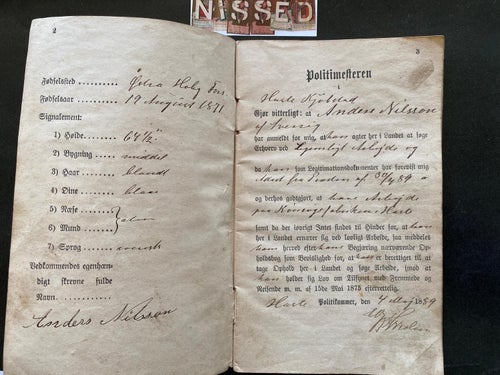 NISSED
2
Fødselssted
Fødselsaar 19 August 1871
Signalement:
1) Høide 64½"
2) Bygning middel
3) Haar blondt
4) Øine blaa
5) Næse
6) Mund
7) Sprog svensk
Vedkommendes egenhæn-
digt skrevne fulde
Navn.
Anders Nilsson
3
Politimesteren
i
Kjøbstad
Gjør vitterligt: at Anders Nilsson
af Sverrig
har anmeldt for mig, at han agter her i Landet at søge
Erhverv ved Legemligt Arbejde og
da han som Legitimationsdokumenter har forevist mig
89
og derhos godtgjort, at han Arbejde
paa
samt da der iøvrigt Intet findes til Hinder for, at han
her i Landet ernærer sig ved lovligt Arbejde, saa meddeles
ham herved efter hans Begjæring nærværende Op-
holdsbog som Bevislighed for, at han er berettiget til at
tage Ophold her i Landet og søge Arbejde, imod at
han holder sig Lov om Tilsynet med Fremmede og
Reisende m. m. af 15de Mai 1875 efterrettelig.
Politikammer, den 4 Maj 1889